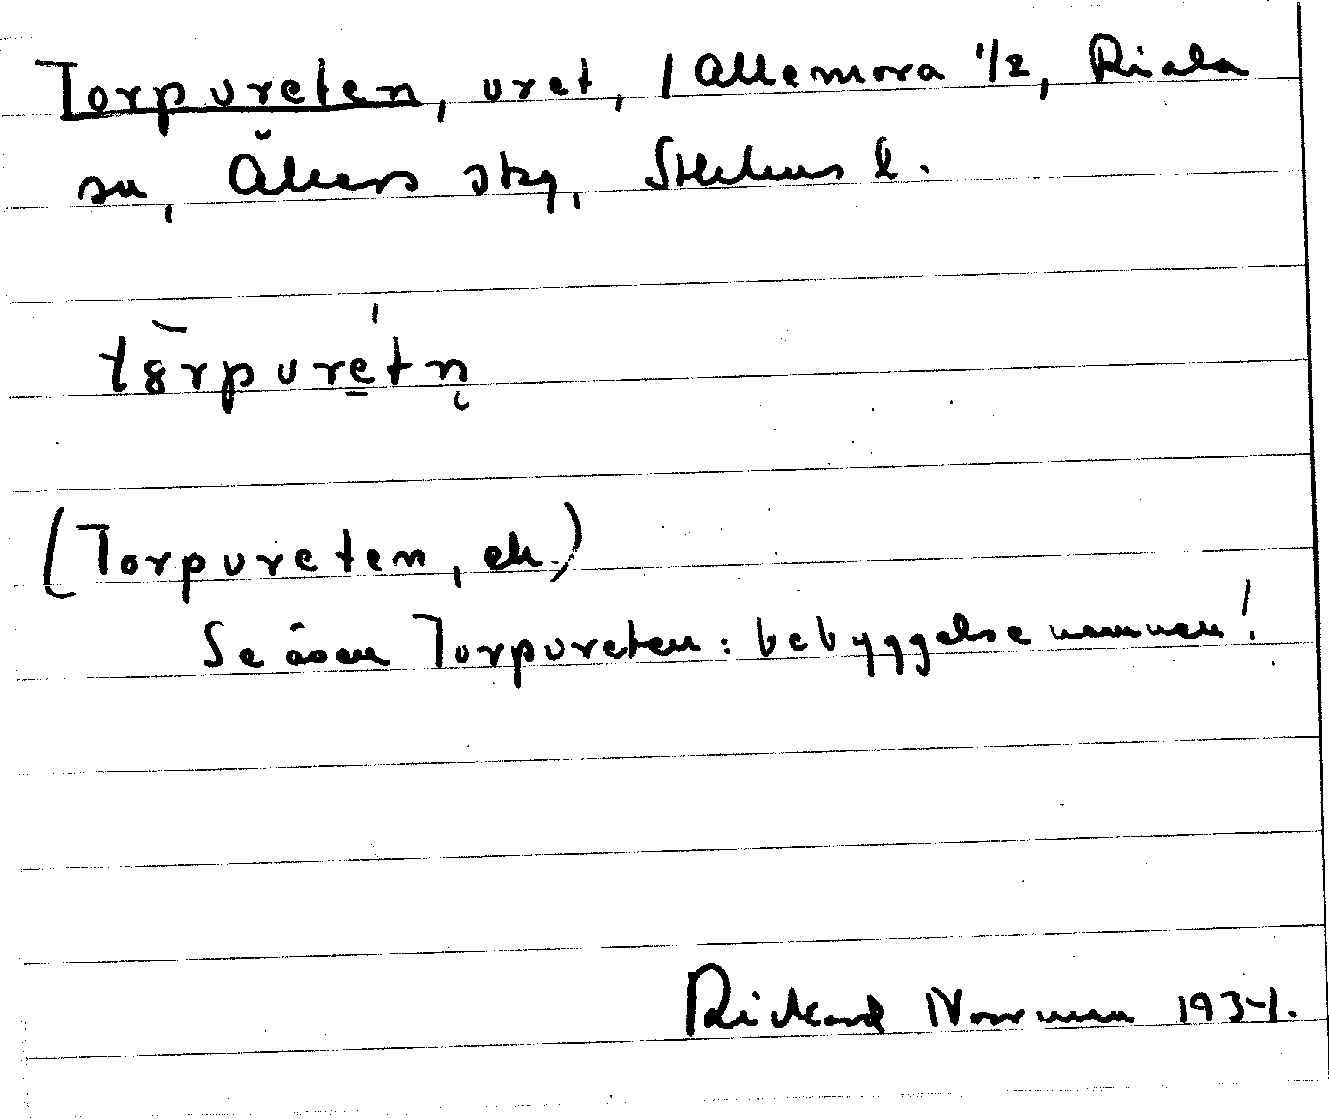 Torpureten, uret, / Allemora 1/2, Riala
sn, Åkers skg, Sthlms l.
tȣrpuretn̥
(Torpureten, ek.)
Se även Torpureten: bebyggelsenamnen!
Rickard Norrman 1934.